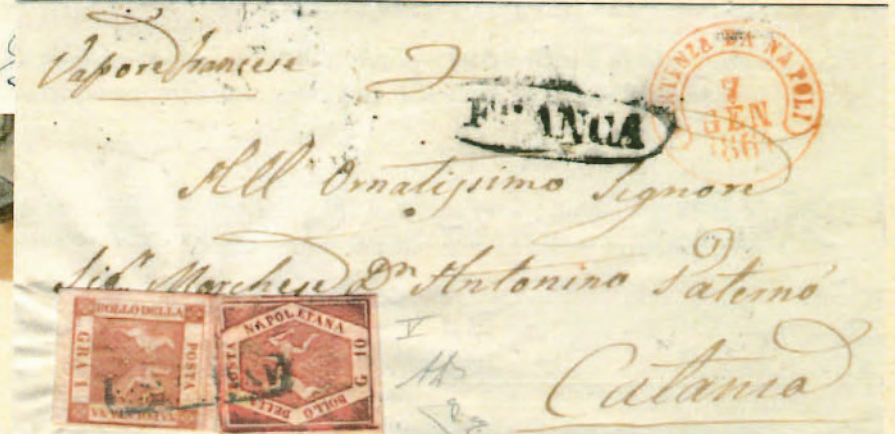 Vapore francese
2
FRANCA
PARTENZA DA NAPOLI
7
GEN
186
All Ornatissimo Signore
Sig.r Marchese Dn Antonino Paternó
Catania
BOLLO DELLA POSTA NAPOLETANA GRA 1
BOLLO DELLA POSTA NAPOLETANA G 10
V